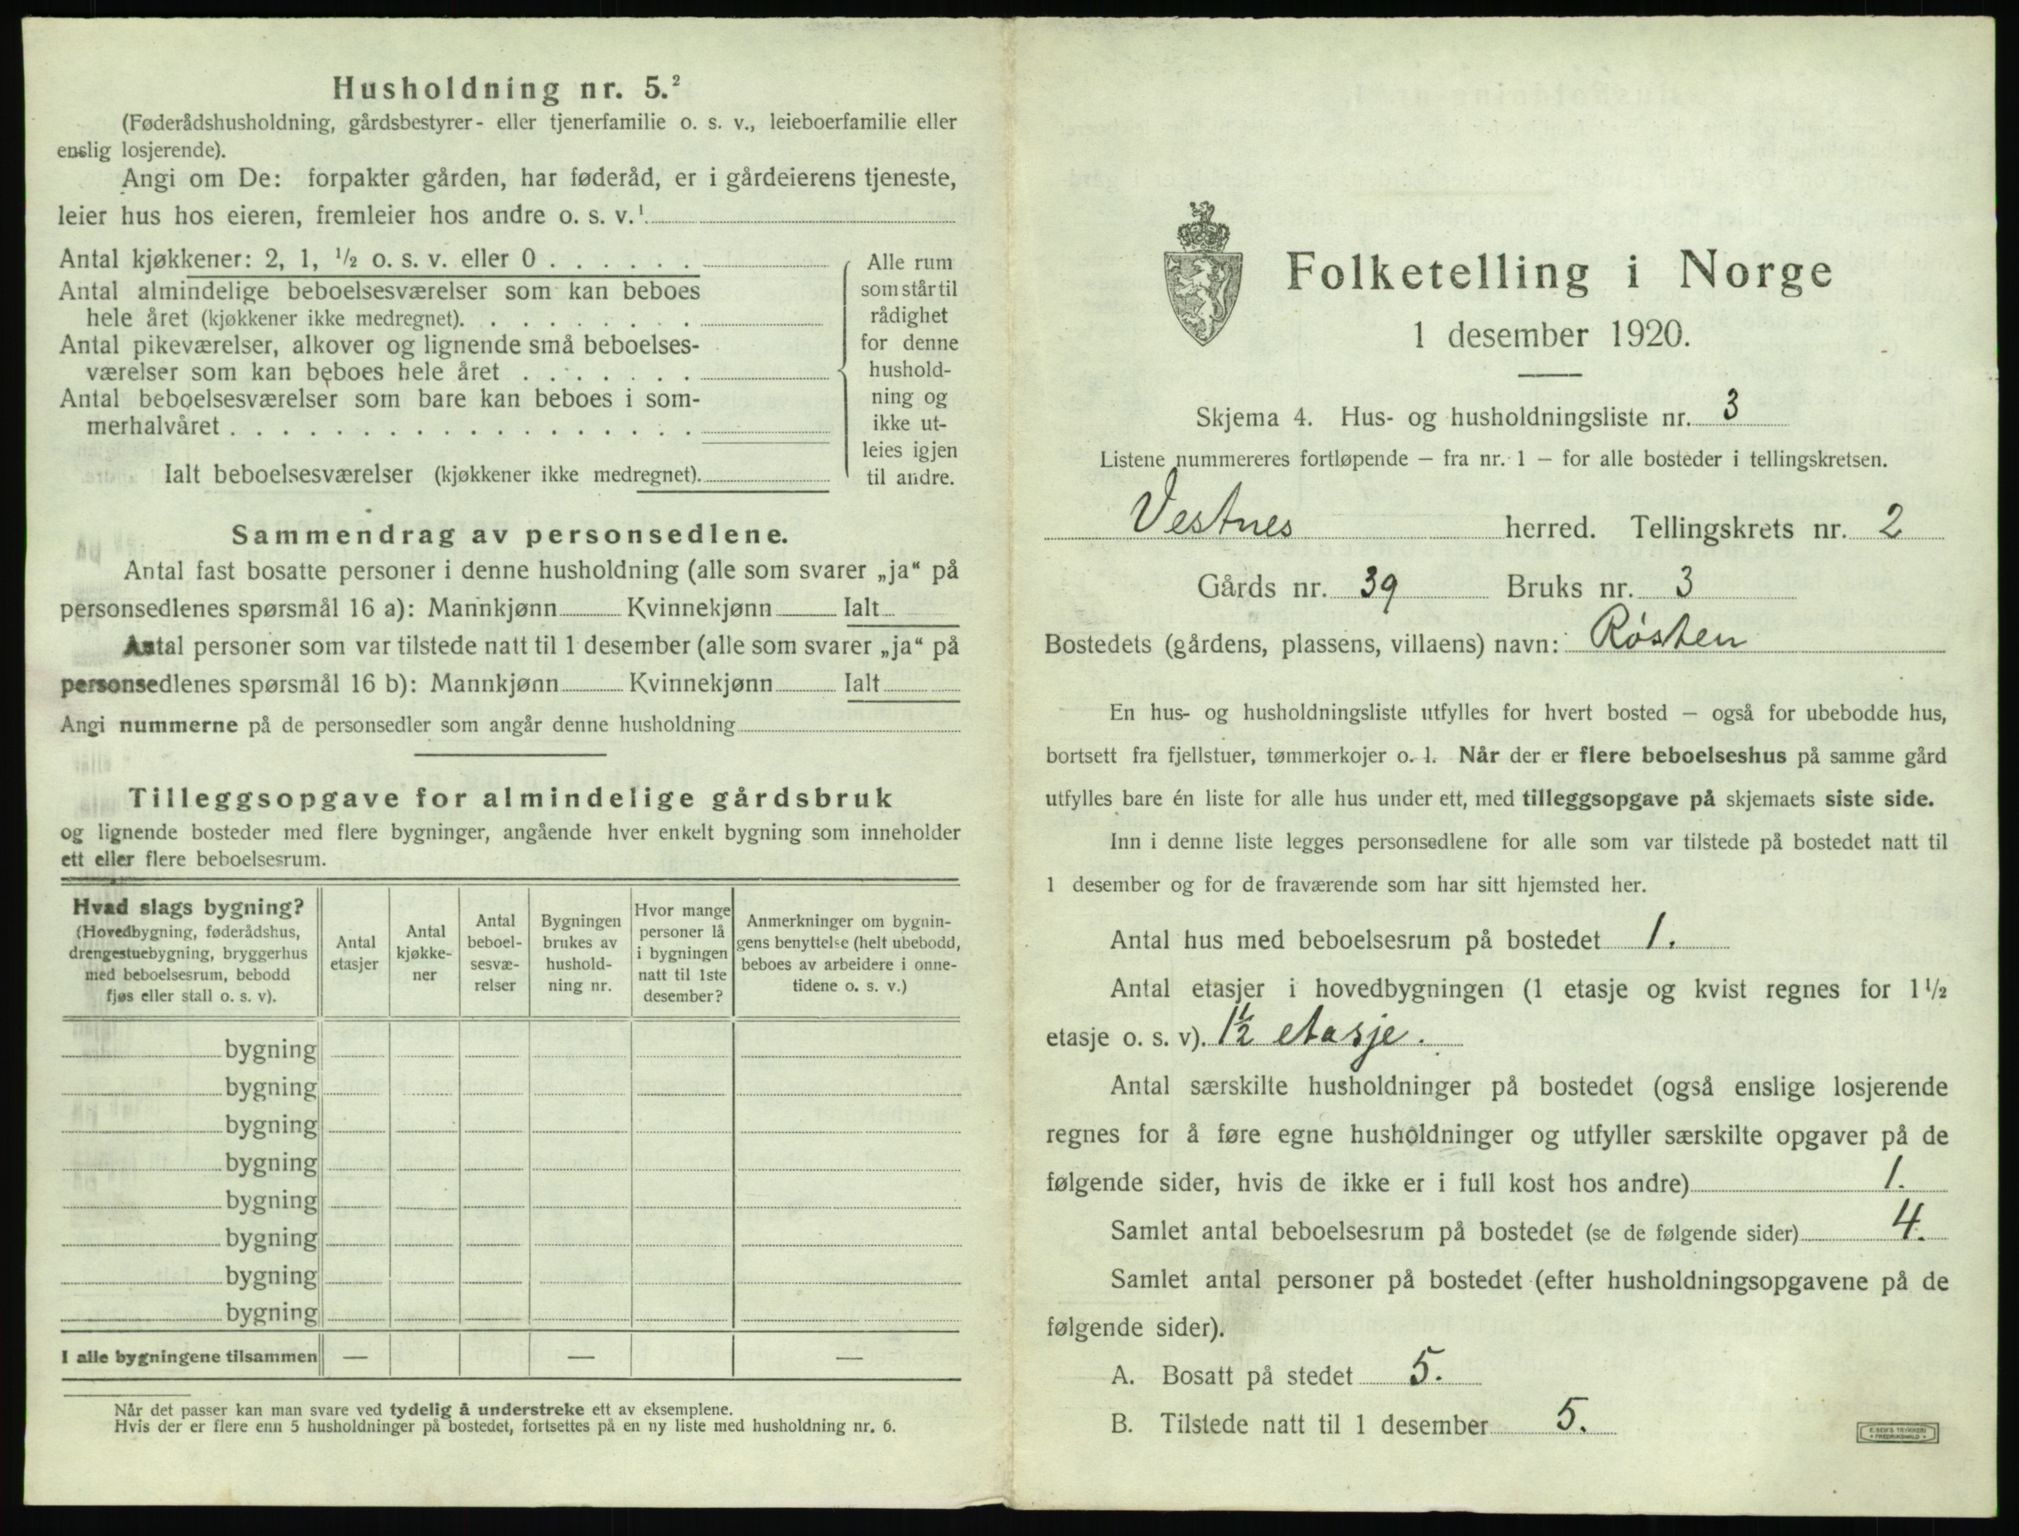 Husholdning nr. 5.²
(Føderådshusholdning, gårdsbestyrer- eller tjenerfamilie o. s. v., leieboerfamilie eller
enslig losjerende).
Angi om De: forpakter gården, har føderåd, er i gårdeierens tjeneste,
leier hus hos eieren, fremleier hos andre o. s. v.¹
Antal kjøkkener: 2, 1, ½ o. s. v. eller 0 . . . . . .
Antal almindelige beboelsesværelser som kan beboes
hele året (kjøkkener ikke medregnet). . . . . . . . .
Antal pikeværelser, alkover og lignende små beboelses-
værelser som kan beboes hele året . . . . . . .
Antal beboelsesværelser som bare kan beboes i som-
merhalvåret . . . . . . . . . . . . . . . . . .
Ialt beboelsesværelser (kjøkkener ikke medregnet).
Alle rum
som står til
rådighet
for denne
hushold-
ning og
ikke ut-
leies igjen
til andre.
Sammendrag av personsedlene.
Antal fast bosatte personer i denne husholdning (alle som svarer „ja“ på
personsedlenes spørsmål 16 a): Mannkjønn Kvinnekjønn Ialt
Antal personer som var tilstede natt til 1 desember (alle som svarer „ja“ på
personsedlenes spørsmål 16 b): Mannkjønn Kvinnekjønn Ialt
Angi nummerne på de personsedler som angår denne husholdning
Tilleggsopgave for almindelige gårdsbruk
og lignende bosteder med flere bygninger, angående hver enkelt bygning som inneholder
ett eller flere beboelsesrum.
Hvad slags bygning?
(Hovedbygning, føderådshus,
drengestuebygning, bryggerhus
med beboelsesrum, bebodd
fjøs eller stall o. s. v).
Antal
etasjer
Antal
kjøkke-
ner
Antal
beboel-
sesvæ-
relser
Bygningen
brukes av
hushold-
ning nr.
Hvor mange
personer lå
i bygningen
natt til 1ste
desember?
Anmerkninger om bygnin-
gens benyttelse (helt ubebodd,
beboes av arbeidere i onne-
tidene o. s. v.)
bygning
bygning
bygning
bygning
bygning
bygning
bygning
bygning
I alle bygningene tilsammen — — —
Når det passer kan man svare ved tydelig å understreke ett av eksemplene.
Hvis der er flere enn 5 husholdninger på bostedet, fortsettes på en ny liste med husholdning nr. 6.
Folketelling i Norge
1 desember 1920.
Skjema 4. Hus- og husholdningsliste nr. 3
Listene nummereres fortløpende – fra nr. 1 – for alle bosteder i tellingskretsen.
Vestnes herred. Tellingskrets nr. 2
Gårds nr. 39 Bruks nr. 3
Bostedets (gårdens, plassens, villaens) navn: Røsten
En hus- og husholdningsliste utfylles for hvert bosted – også for ubebodde hus,
bortsett fra fjellstuer, tømmerkojer o. l. Når der er flere beboelseshus på samme gård
utfylles bare én liste for alle hus under ett, med tilleggsopgave på skjemaets siste side.
Inn i denne liste legges personsedlene for alle som var tilstede på bostedet natt til
1 desember og for de fraværende som har sitt hjemsted her.
Antal hus med beboelsesrum på bostedet 1.
Antal etasjer i hovedbygningen (1 etasje og kvist regnes for 1½
etasje o. s. v). 1½ etasje.
Antal særskilte husholdninger på bostedet (også enslige losjerende
regnes for å føre egne husholdninger og utfyller særskilte opgaver på de
følgende sider, hvis de ikke er i full kost hos andre) 1.
Samlet antal beboelsesrum på bostedet (se de følgende sider) 4.
Samlet antal personer på bostedet (efter husholdningsopgavene på de
følgende sider).
A. Bosatt på stedet 5.
B. Tilstede natt til 1 desember 5.